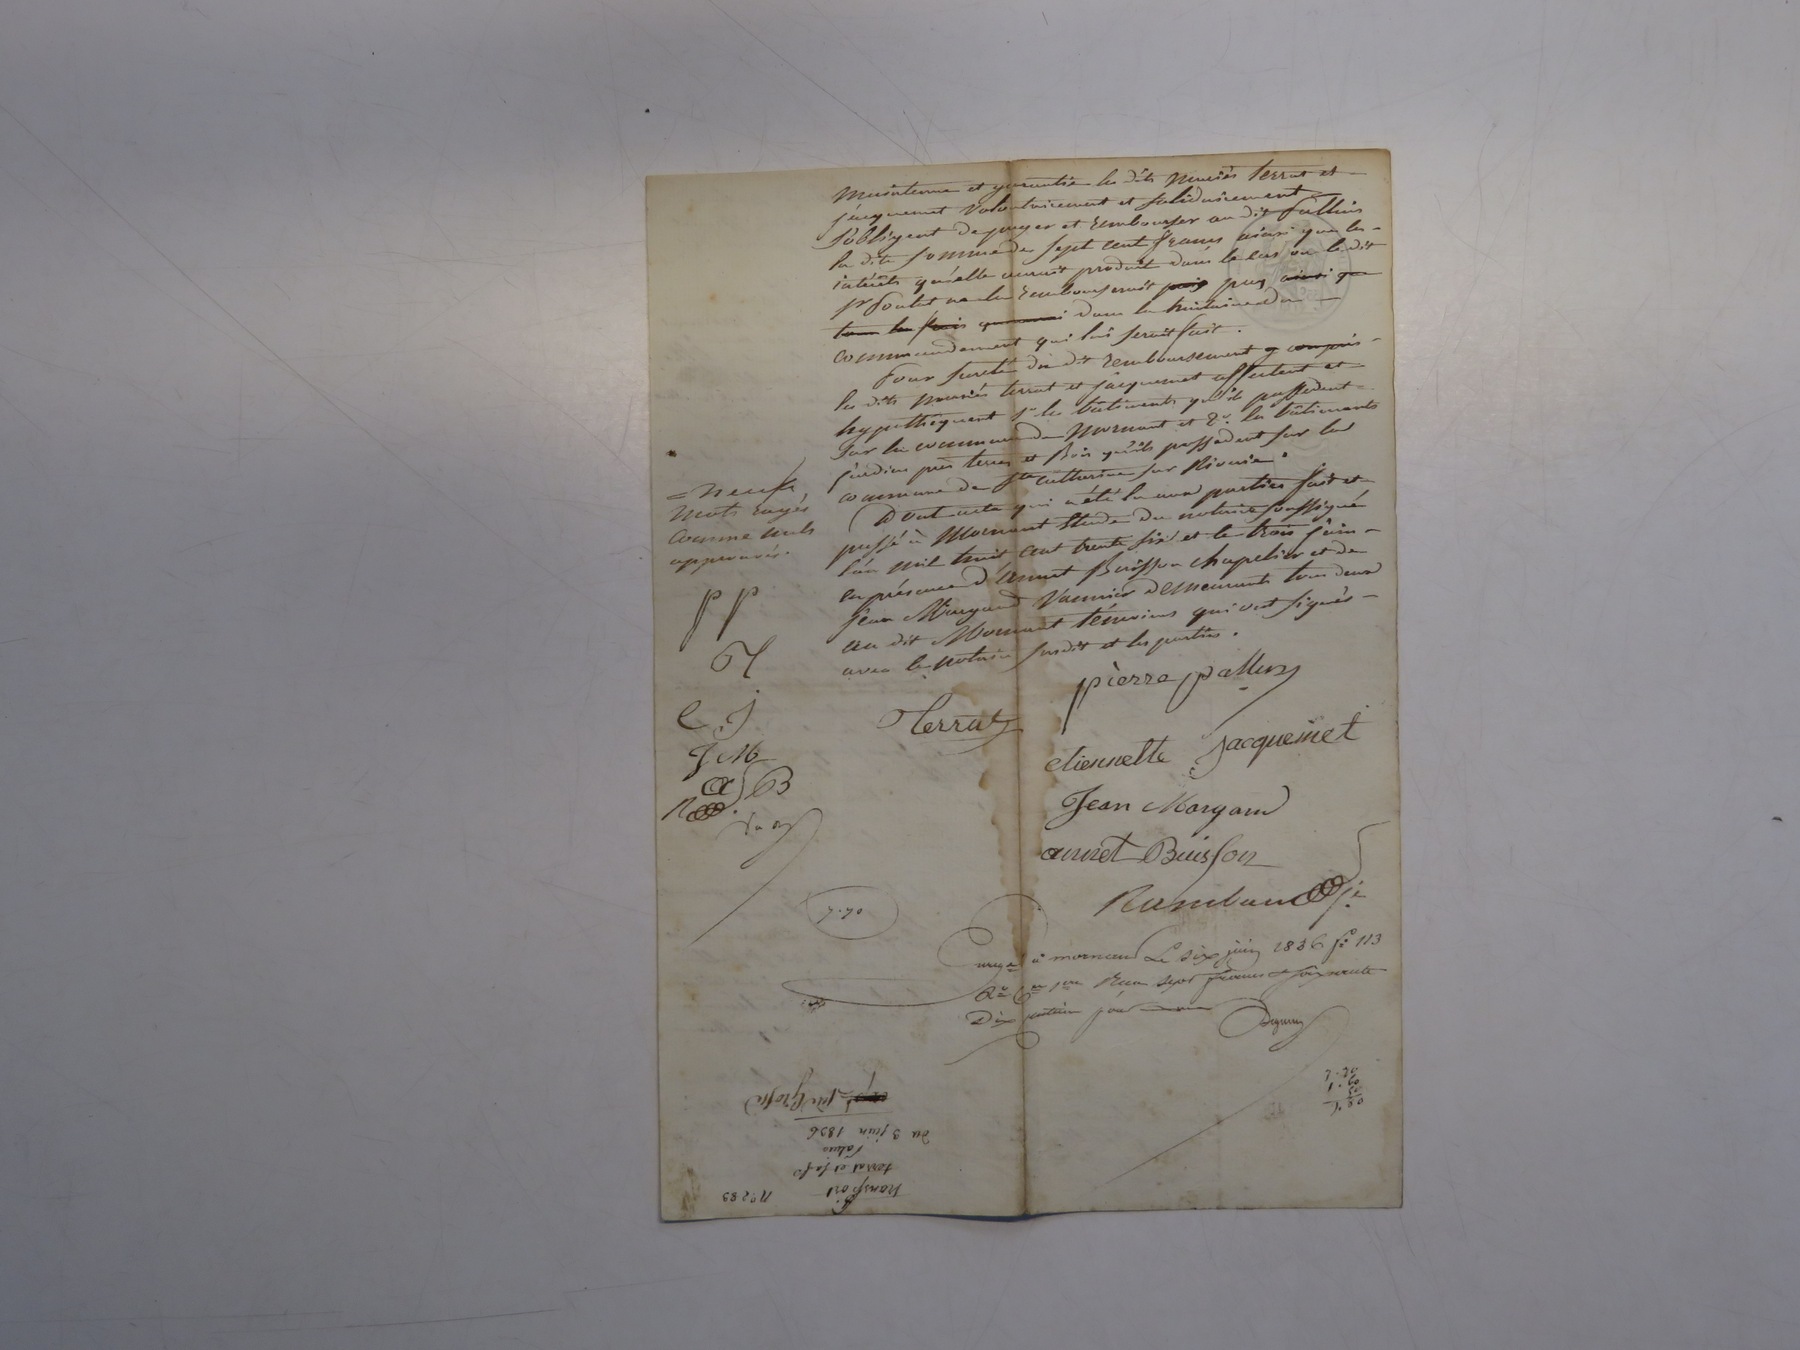 maintenue et garantie les dits mariés terrat et
jacquemet volontairement et solidairement
s'obligent de payer et rembourser au dit pallins
la dite somme de sept cent francs ainsi que les
intérêts qu'elle auroit produit dans le cas où le dit
sr ne la rembourseroit pas ainsi que
tous les frais dans la huitaine du
commandement qui lui seroit fait.
Pour sureté du dit remboursement y compris
les dits mariés terrat et jacquemet affectent et
hypothèquent 1° les bâtiments qu'ils possedent
sur la commune de Mornant et 2° les bâtiments
jardins près terres et Bois qu'ils possedent sur la
commune de Ste Catherine sur Riverie.
Dont acte qui a été lu aux parties fait et
passé à Mornant Etude du notaire soussigné
l'an mil huit cent trente six et le trois juin
en présence d'annet Buisson chapelier et de
jean Margand Vannier demeurants tous deux
au dit Mornant témoins qui ont signés
avec le notaire susdit et les parties.
= neuf
mots rayés
comme nuls
approuvés.
p p
T
e J
J M
a B
R
pierre pallins
Terrat
etiennette Jacquemet
Jean Margand
annet Buisson
Rambaud
à mornant Le six juin 1836 f° 113
Reçu sept francs soixante
Dix centimes
N° 283
transport
terrat et jaco
du 3 juin 1836